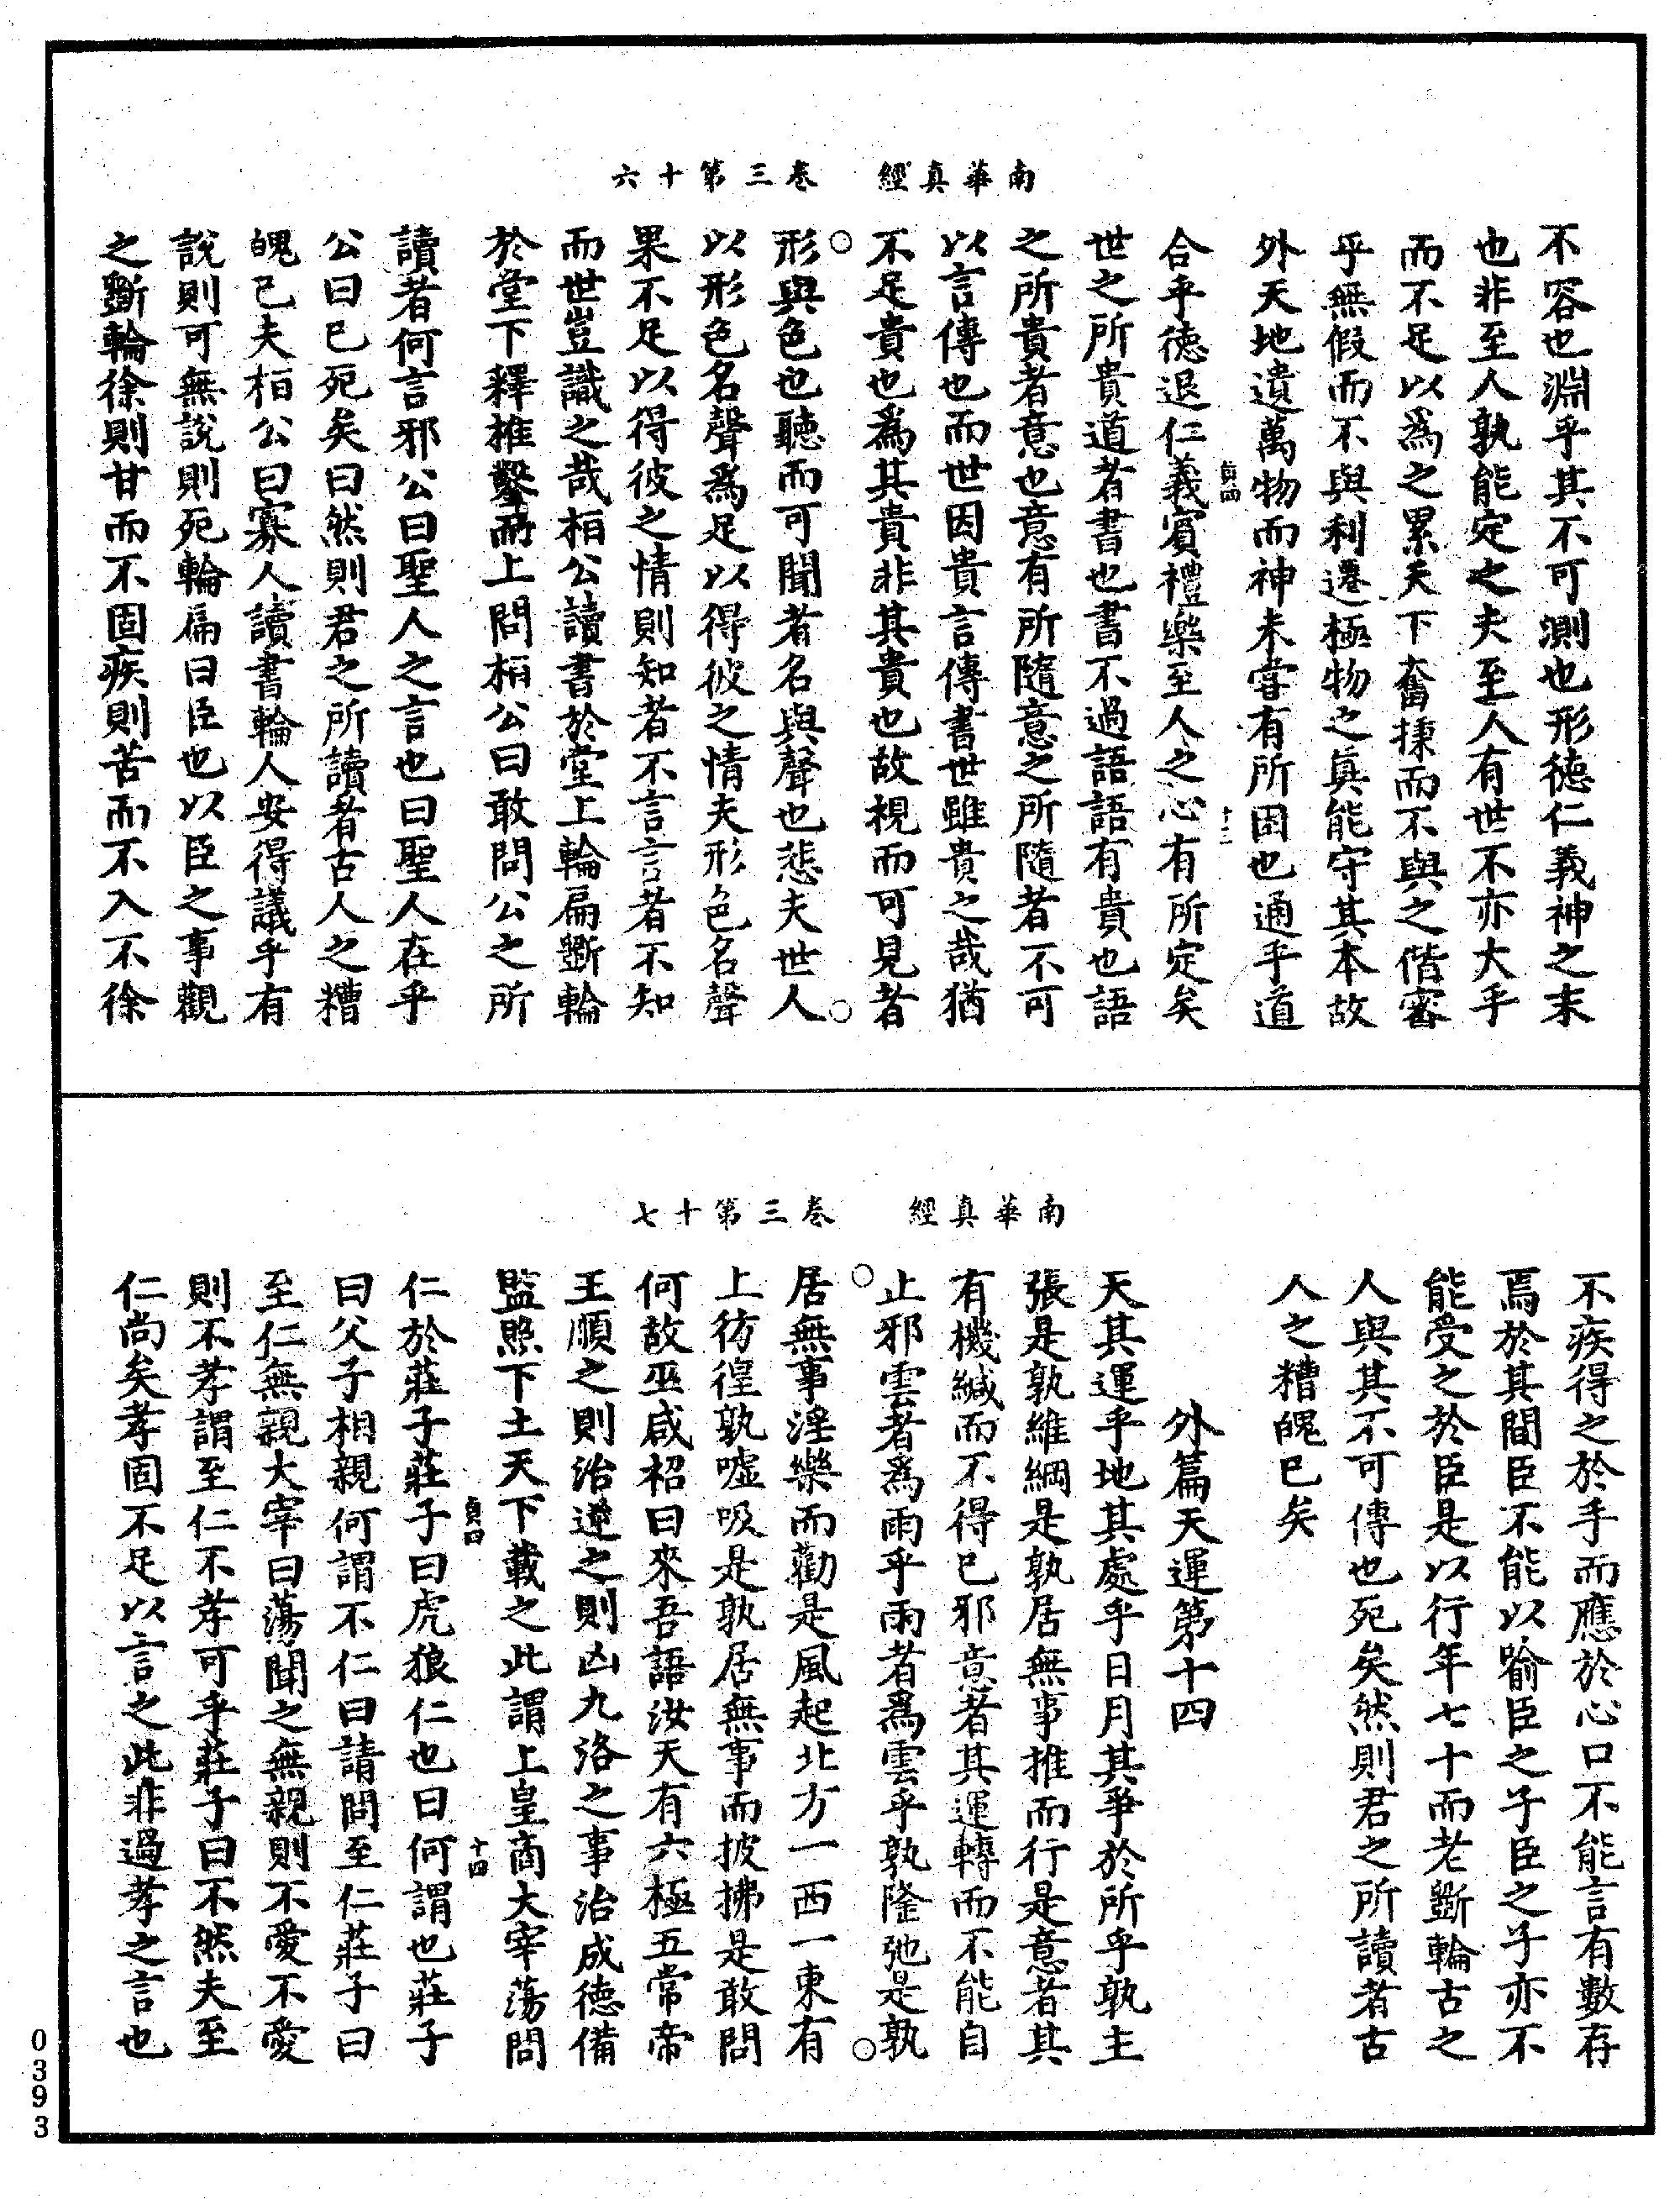 南華真經　卷三第十六
不容也淵乎其不可測也形德仁義神之末
也非至人孰能定之夫至人有世不亦大乎
而不足以為之累天下奮揀而不與之偕審
乎無假而不與利遷極物之真能守其本故
外天地遺萬物而神未嘗有所困也通乎道
貞四　十三
合乎德退仁義賓禮樂至人之心有所定矣
世之所貴道者書也書不過語語有貴也語
之所貴者意也意有所隨意之所隨者不可
以言傳也而世因貴言傳書世雖貴之哉猶
不足貴也為其貴非其貴也故視而可見者
形與色也聽而可聞者名與聲也悲夫世人
以形色名聲為足以得彼之情夫形色名聲
果不足以得彼之情則知者不言言者不知
而世豈識之哉桓公讀書於堂上輪扁斲輪
於堂下釋推鑿而上問桓公曰敢問公之所
讀者何言邪公曰聖人之言也曰聖人在乎
公曰已死矣曰然則君之所讀者古人之糟
魄已夫桓公曰寡人讀書輪人安得議乎有
說則可無說則死輪扁曰臣也以臣之事觀
之斲輪徐則甘而不固疾則苦而不入不徐
南華真經　卷三第十七
不疾得之於手而應於心口不能言有數存
焉於其間臣不能以喻臣之子臣之子亦不
能受之於臣是以行年七十而老斲輪古之
人與其不可傳也死矣然則君之所讀者古
人之糟魄已矣
外篇天運第十四
天其運乎地其處乎日月其爭於所乎孰主
張是孰維綱是孰居無事推而行是意者其
有機緘而不得已邪意者其運轉而不能自
止邪雲者為雨乎雨者為雲乎孰隆弛是孰
居無事淫樂而勸是風起北方一西一東有
上彷徨孰噓吸是孰居無事而披拂是敢問
何故巫咸祒曰來吾語汝天有六極五常帝
王順之則治逆之則凶九洛之事治成德備
監照下土天下載之此謂上皇商大宰蕩問
貞四　十四
仁於莊子莊子曰虎狼仁也曰何謂也莊子
曰父子相親何謂不仁曰請問至仁莊子曰
至仁無親大宰曰蕩聞之無親則不愛不愛
則不孝謂至仁不孝可乎莊子曰不然夫至
仁尚矣孝固不足以言之此非過孝之言也
0393